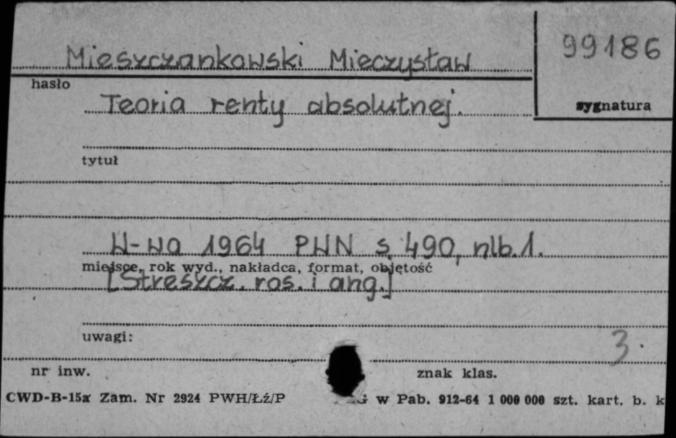 Mieszczankowski Mieczysław
99186
hasło
sygnatura
Teoria renty absolutnej.
tytuł
W-wa 1964 PWN s. 490, nlb. 1.
miejsce, rok wyd., nakładca, format, objętość
[Streszcz. ros. i ang.]
uwagi:
3.
nr inw.
znak klas.
CWD-B-15a Zam. Nr 2924 PWH/Łź/P w Pab. 912-64 1 000 000 szt. kart. b. k